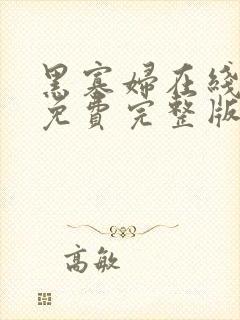 黑寡婦在綫
免費完整版
高敏